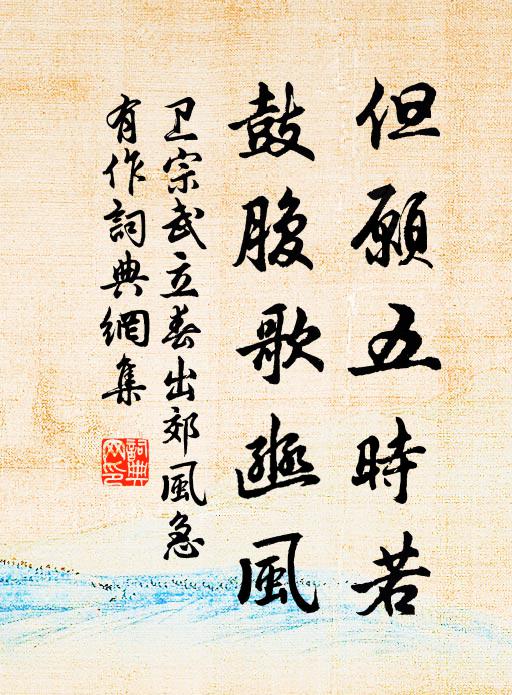 但願五時若
鼓腹歌豳風
卫宗武立春出郊風急
有作詞典網集
詞典